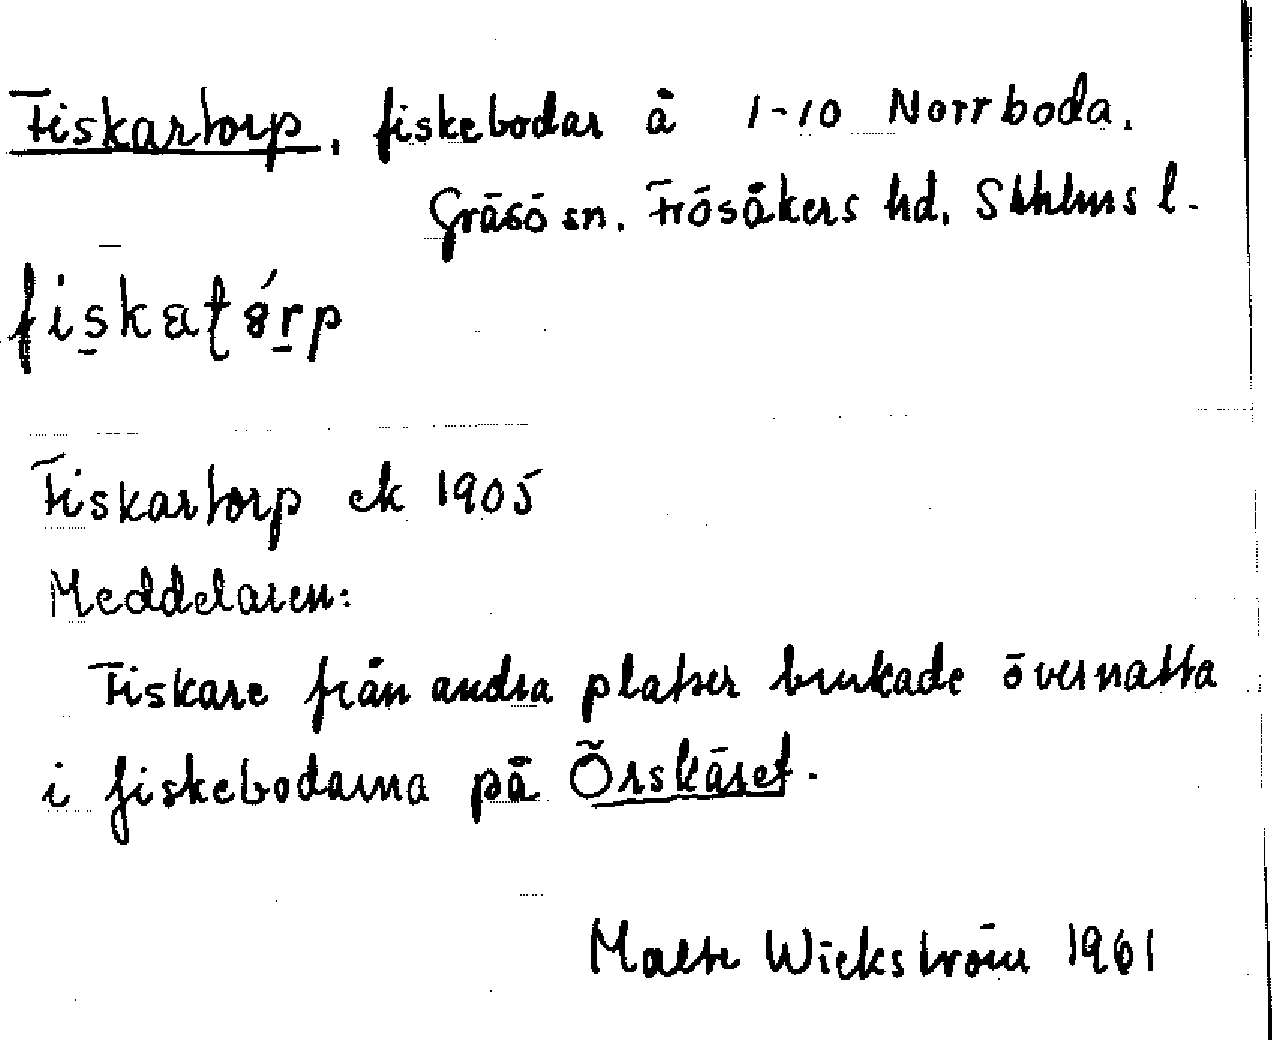 Fiskartorp, fiskebodar å 1-10 Norrboda.
Gräsö sn. Frösåkers hd, Sthlms l.
fiskatórp
Fiskartorp ek 1905
Meddelaren:
Fiskare från andra platser brukade övernatta
i fiskebodarna på Örskäret.
Malte Wickström 1961